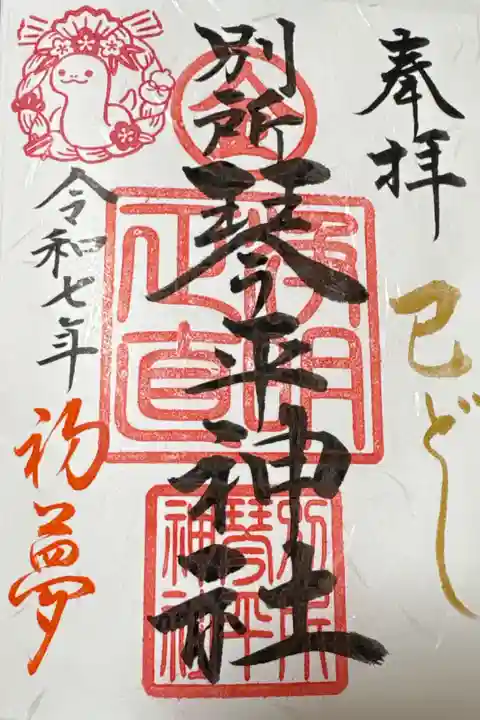 奉拝
巳どし
別所
琴平神社
令和七年
初夢
金
別所
琴平
神社